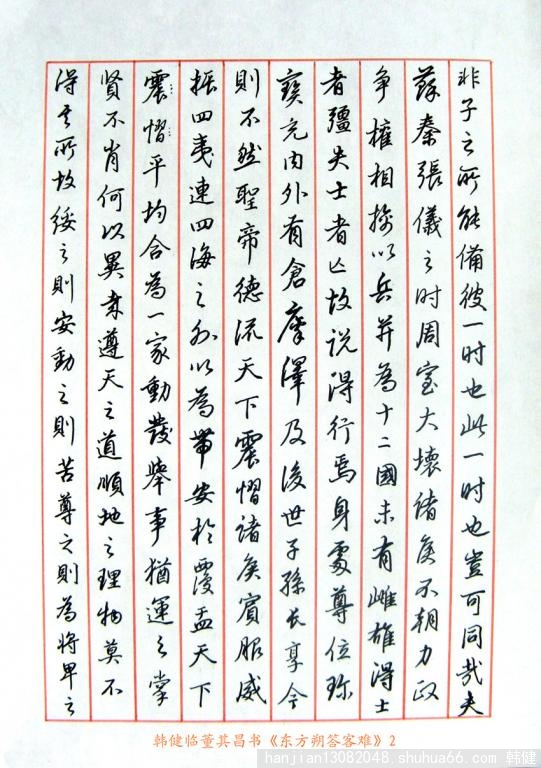 非子之所能備彼一时也此一时也豈可同哉夫
蘇秦張儀之时周室大壞諸矦不朝力政
争權相擒以兵并為十二國未有雌雄得士
者彊失士者亡故说得行焉身處尊位珍
寶充内外有倉廩澤及後世子孫长享今
則不然聖帝德流天下震慴諸矦賓服威
振四夷連四海之外以為帶安於覆盂天下
震慴平均合為一家動發舉事猶運之掌
賢不肖何以異哉遵天之道順地之理物莫不
得其所故綏之則安動之則苦尊之則為将卑之
韩健临董其昌书《东方朔答客难》2
hanjian13082048.shuhua66.com 韩健